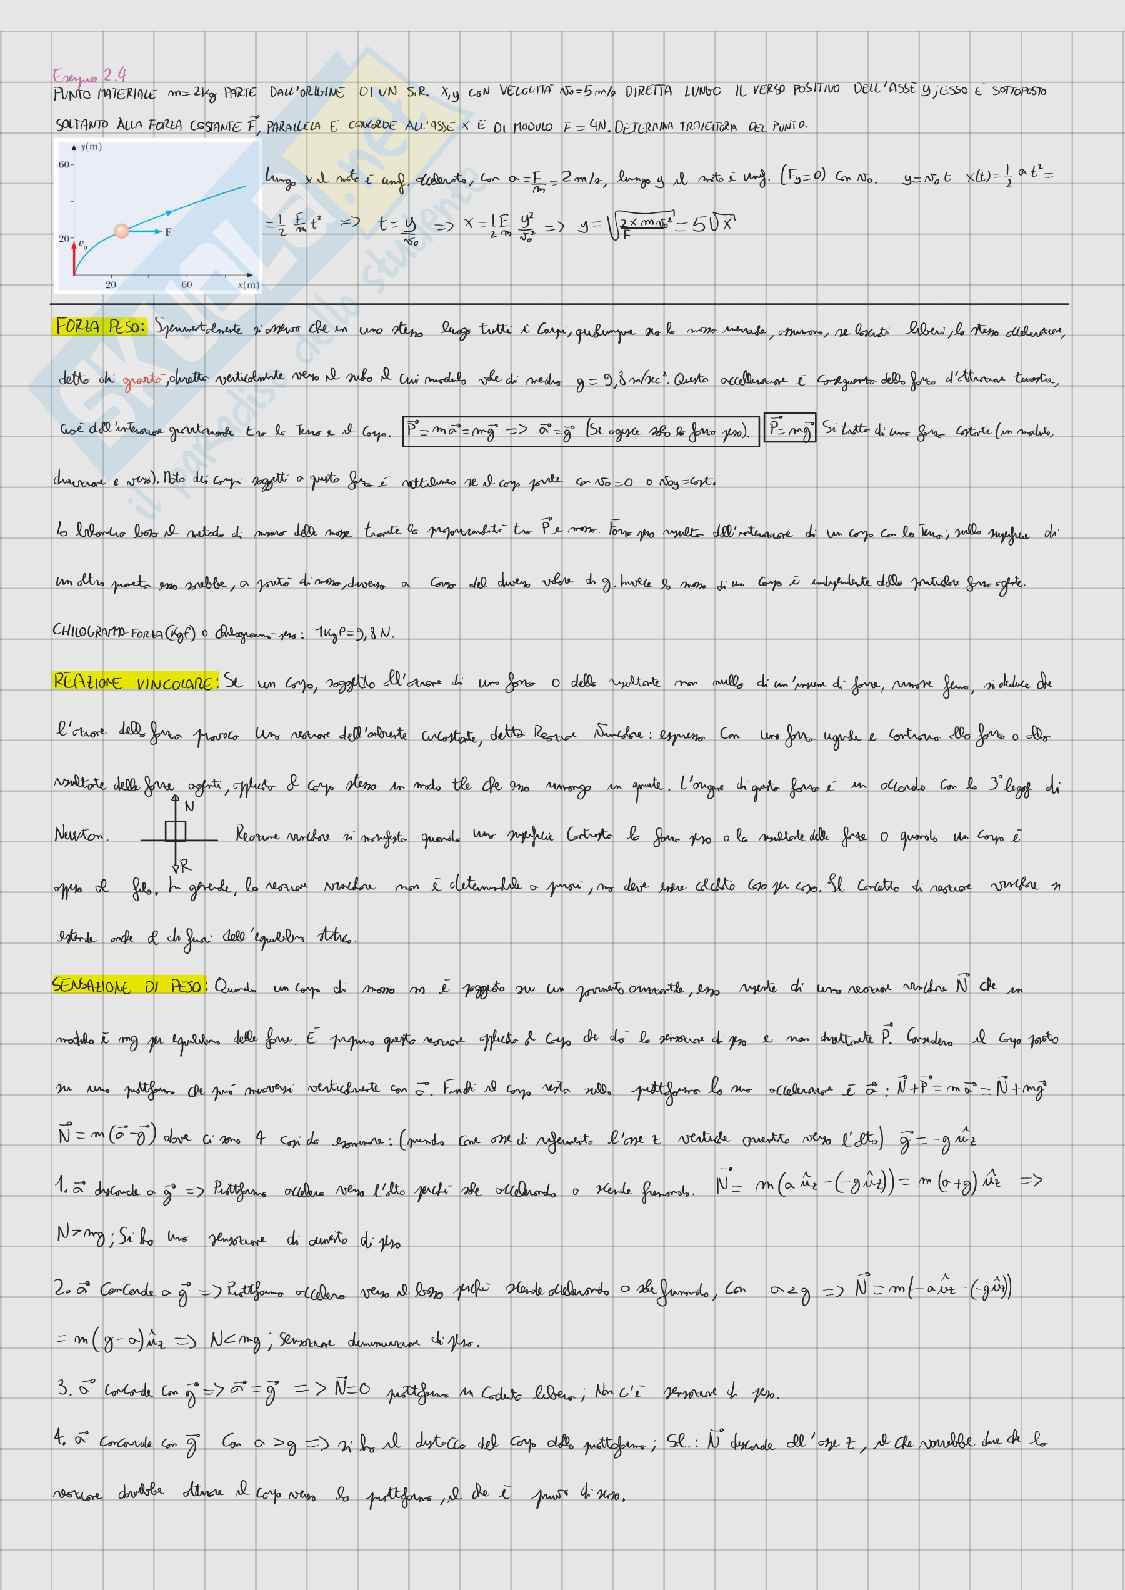 Esempio 2.4
PUNTO MATERIALE m=2kg PARTE DALL'ORIGINE DI UN S.R. x,y CON VELOCITÀ v₀=5m/s DIRETTA LUNGO IL VERSO POSITIVO DELL'ASSE y; ESSO È SOTTOPOSTO
SOLTANTO ALLA FORZA COSTANTE F⃗, PARALLELA E CONCORDE ALL'ASSE X E DI MODULO F=4N. DETERMINA TRAIETTORIA DEL PUNTO.
y(m)
60
20
v₀
F
20 60 x(m)
Lungo x il moto è unif. accelerato, con a=F/m=2m/s, lungo y il moto è unif. (Fy=0) con v₀. y=v₀t x(t)=1/2 at²=
=1/2 F/m t² => t=y/v₀ => x=1/2 F/m y²/v₀² => y=√(2x m v₀²/F)=5√x
FORZA PESO: Sperimentalmente si osserva che in uno stesso luogo tutti i corpi, qualunque sia la massa inerziale, assumono, se lasciati liberi, la stessa accelerazione,
detta di gravità, diretta verticalmente verso il suolo il cui modulo vale di media g=9,8m/sec². Questa accellerazione è conseguenza della forza d'attrazione terrestre,
cioè dall'interazione gravitazionale tra la Terra e il corpo. P⃗=ma⃗=mg⃗ => a⃗=g⃗ (Se agisce solo la forza peso). P⃗=mg⃗ Si tratta di una forza costante (in modulo,
direzione e verso). Moto dei corpi soggetti a questa forza è rettilineo se il corpo parte con v₀=0 o v₀y=cost.
La bilancia basa il metodo di misura delle masse tramite la proporzionalità tra P⃗ e massa. Forza peso risulta dall'interazione di un corpo con la Terra; sulla superficie di
un altro pianeta essa sarebbe, a parità di massa, diversa a causa del diverso valore di g. Invece la massa di un corpo è indipendente dalla particolare forza agente.
CHILOGRAMMO-FORZA (Kgf) o chilogrammo-peso: 1KgP=9,8N.
REAZIONE VINCOLARE: Se un corpo, soggetto all'azione di una forza o della risultante non nulla di un'insieme di forze, rimane fermo, si deduce che
l'azione della forza provoca una reazione dell'ambiente circostante, detta Reazione Vincolare: espressa con una forza uguale e contraria alla forza o alla
risultante delle forze agenti, applicata al corpo stesso in modo tale che esso rimanga in quiete. L'origine di questa forza è in accordo con la 3° legge di
Newton.
N
R
Reazione vincolare si manifesta quando una superficie contrasta la forza peso o la risultante delle forze o quando un corpo è
appeso al filo. In generale, la reazione vincolare non è determinabile a priori, ma deve essere calcolata caso per caso. Il concetto di reazione vincolare si
estende anche al di fuori dell'equilibrio statico.
SENSAZIONE DI PESO: Quando un corpo di massa m è poggiato su un pavimento orizzontale, esso risente di una reazione vincolare N⃗ che in
modulo è mg per equilibrio delle forze. È proprio questa reazione applicata al corpo che dà la sensazione di peso e non direttamente P⃗. Consideriamo il corpo posto
su una piattaforma che può muoversi verticalmente con a⃗. Finché il corpo resta sulla piattaforma la sua accelerazione è a⃗: N⃗+P⃗=ma⃗=N⃗+mg⃗
N⃗=m(a⃗-g⃗) dove ci sono 4 casi da esaminare: (prendo come asse di riferimento l'asse z verticale orientato verso l'alto) g⃗=-gûz
1. a⃗ discorde a g⃗ => Piattaforma accelera verso l'alto perché sale accelerando o scende frenando. N⃗=m(aûz-(-gûz))=m(a+g)ûz =>
N>mg; Si ha una sensazione di aumento di peso
2. a⃗ concorde a g⃗ => Piattaforma accelera verso il basso perché scende accelerando o sale frenando, con a<g => N⃗=m(-aûz-(-gûz))
=m(g-a)ûz => N<mg; Sensazione diminuzione di peso.
3. a⃗ concorde con g⃗ => a⃗=g⃗ => N⃗=0 piattaforma in caduta libera; Non c'è sensazione di peso.
4. a⃗ concorde con g⃗ con a>g => si ha il distacco del corpo dalla piattaforma; N⃗ discorde all'asse z, il che vorrebbe dire che la
reazione dovrebbe attirare il corpo verso la piattaforma, il che è privo di senso.
SKUOLA.net
il paradiso dello studente